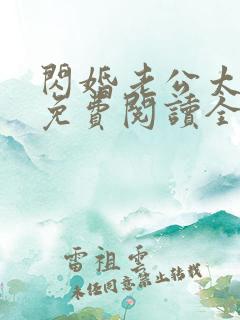 閃婚老公大
免費閱讀全
雷祖雲
未經同意禁止轉載